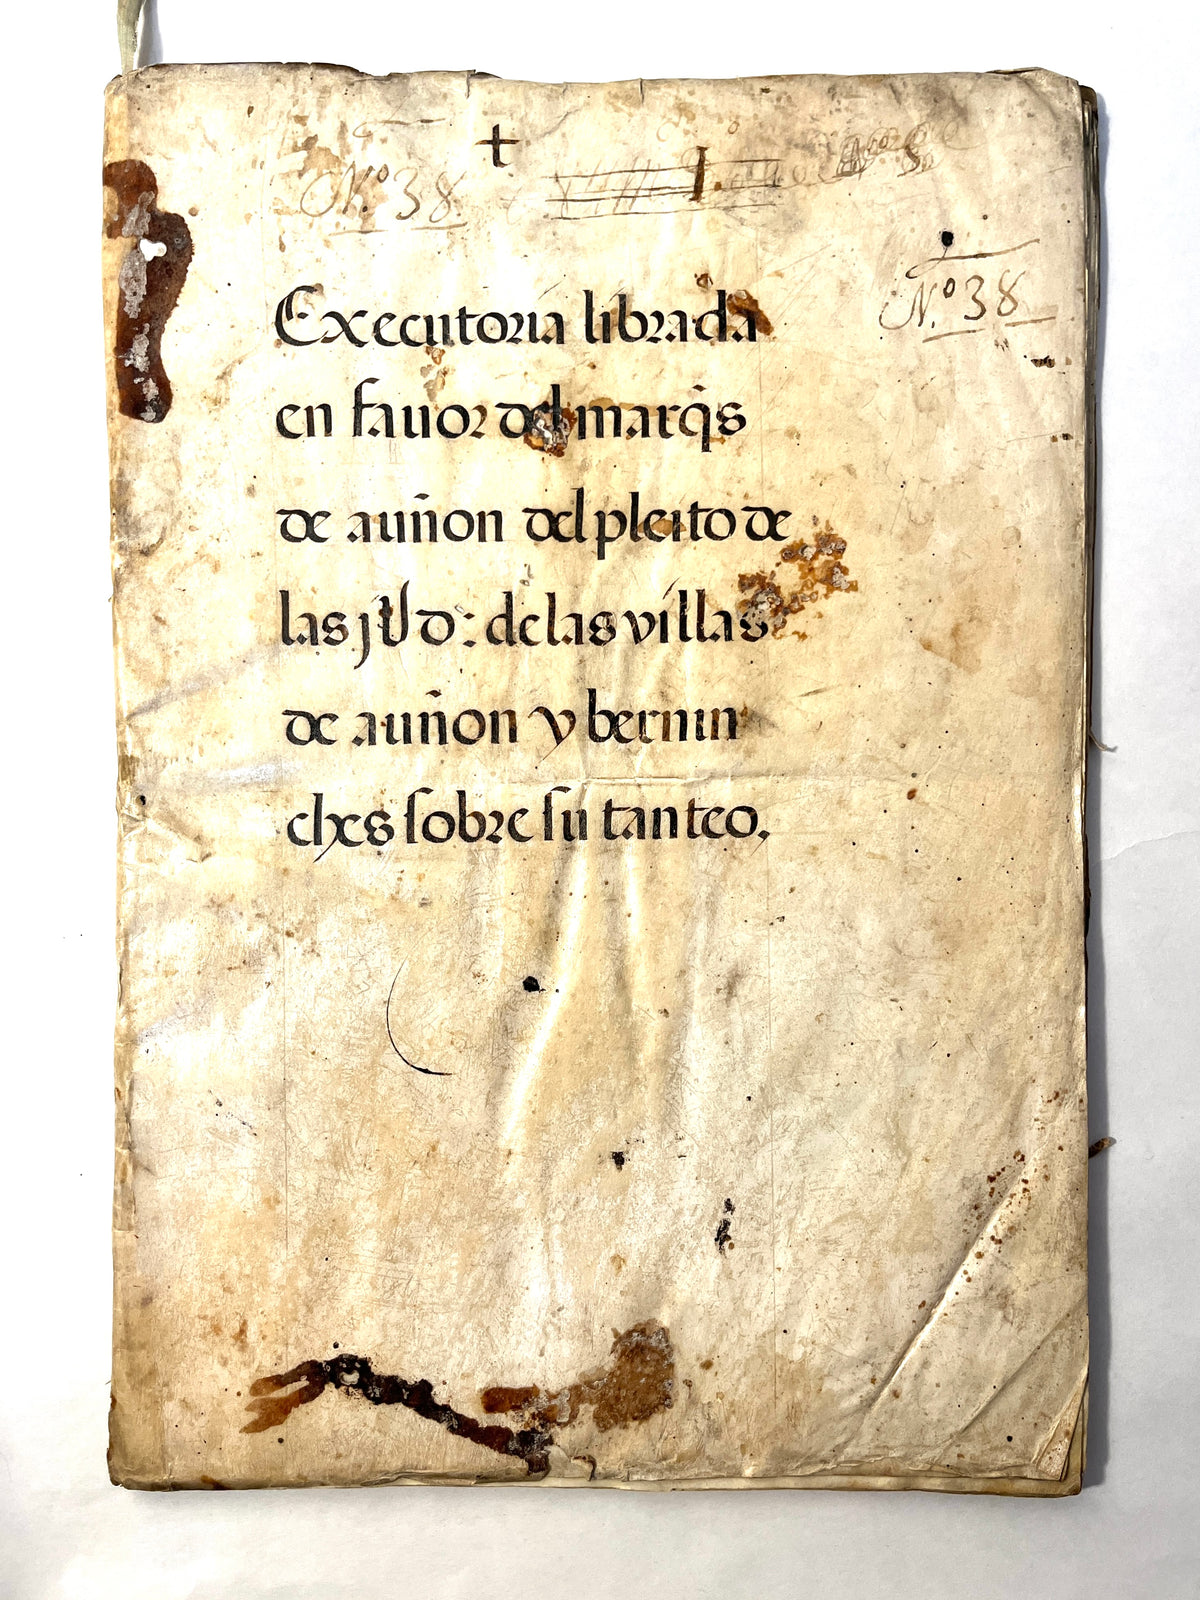 +
N.º 38.
N.º 38
Executoria librada
en fauor del marq̃s
de auñon del pleito de
las jũd: de las villas
de auñon y bernin
ches sobre su tanteo,